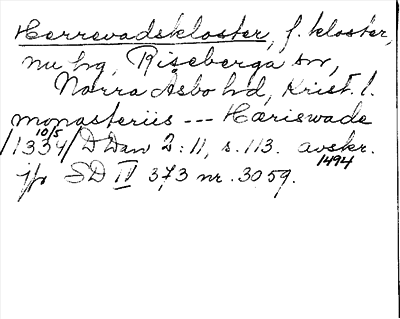 Herrevadskloster, f. kloster,
nu hg, Riseberga sn,
Norra Åsbo hd, Krist. l.
monasteriis --- Hæriswade
/1334 10/5/ D Dan 2:11, s. 113. avskr. 1494
jfr SD IV 373 nr. 3059.